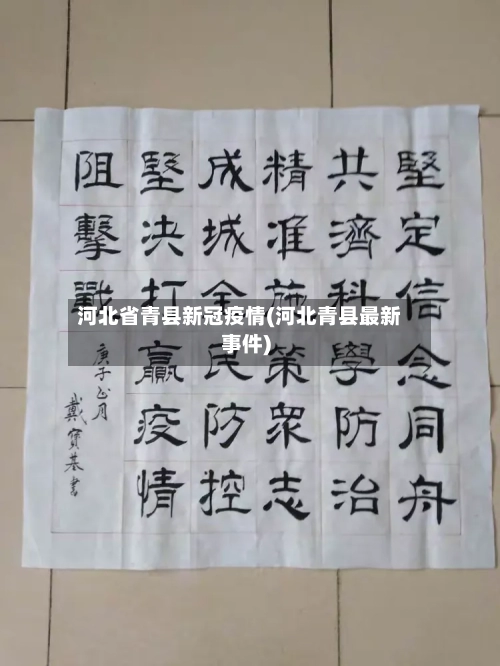 堅定信念同舟
共濟科學防治
精准施策衆志
成城全民防控
堅决打贏疫情
阻擊戰
庚子正月
戴寶基書
河北省青县新冠疫情(河北青县最新
事件)